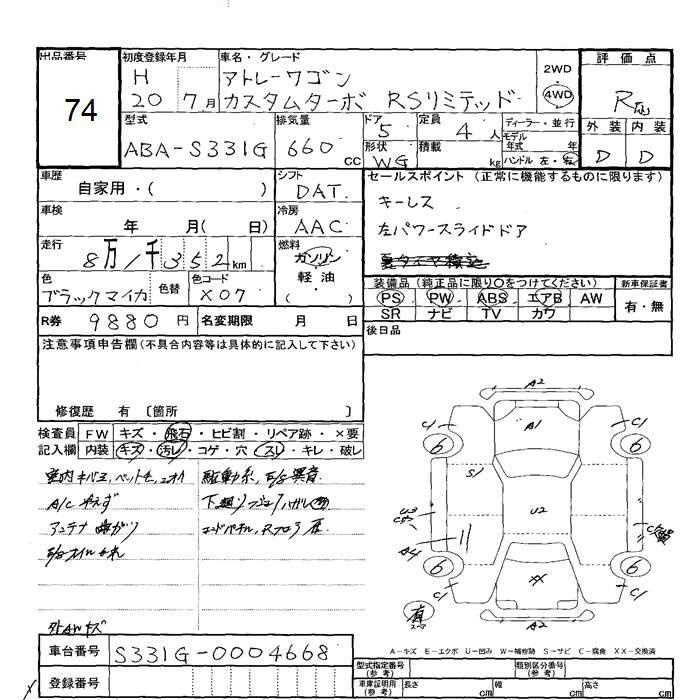 出品番号
74
初度登録年月
H
20 7月
車名・グレード
アトレーワゴン
カスタムターボ RSリミテッド
2WD
・
4WD
評価点
R
外装 内装
D D
型式
ABA-S331G
排気量
660 cc
ドア
5
定員
4 人
形状
WG
積載
kg
ディーラー・並行
モデル
年式 年
ハンドル 左・右
車歴
自家用・( )
シフト
DAT.
セールスポイント (正常に機能するものに限ります)
キーレス
左パワースライドドア
車検
年 月( 日)
冷房
AAC
走行
8万1千352km
燃料
ガソリン
軽油
( )
色
ブラックマイカ
色替
色コード
X07
装備品(純正品に限り○をつけてください)
PS PW ABS エアB AW
SR ナビ TV カワ
新車保証書
有・無
R券 9880 円
名変期限 月 日
後日品
注意事項申告欄(不具合内容等は具体的に記入して下さい)
修復歴 有 〔箇所 〕
検査員
記入欄
FW キズ・飛石・ヒビ割・リペア跡・×要
内装 キズ・汚レ・コゲ・穴・スレ・キレ・破レ
A/C 冷えず
アンテナ曲がり
外AWキズ
A2
A1
C1
C1
6
6
S1
U2
U3
A4
XX
6
6
C1
C1
有
A2
A-キズ E-エクボ U-凹み W-補修跡 S-サビ C-腐食 XX-交換済
車台番号 S331G-0004668
登録番号
型式指定番号
(参考)
類別区分番号
(参考)
車庫証明用
(参考)
長さ cm
幅 cm
高さ cm